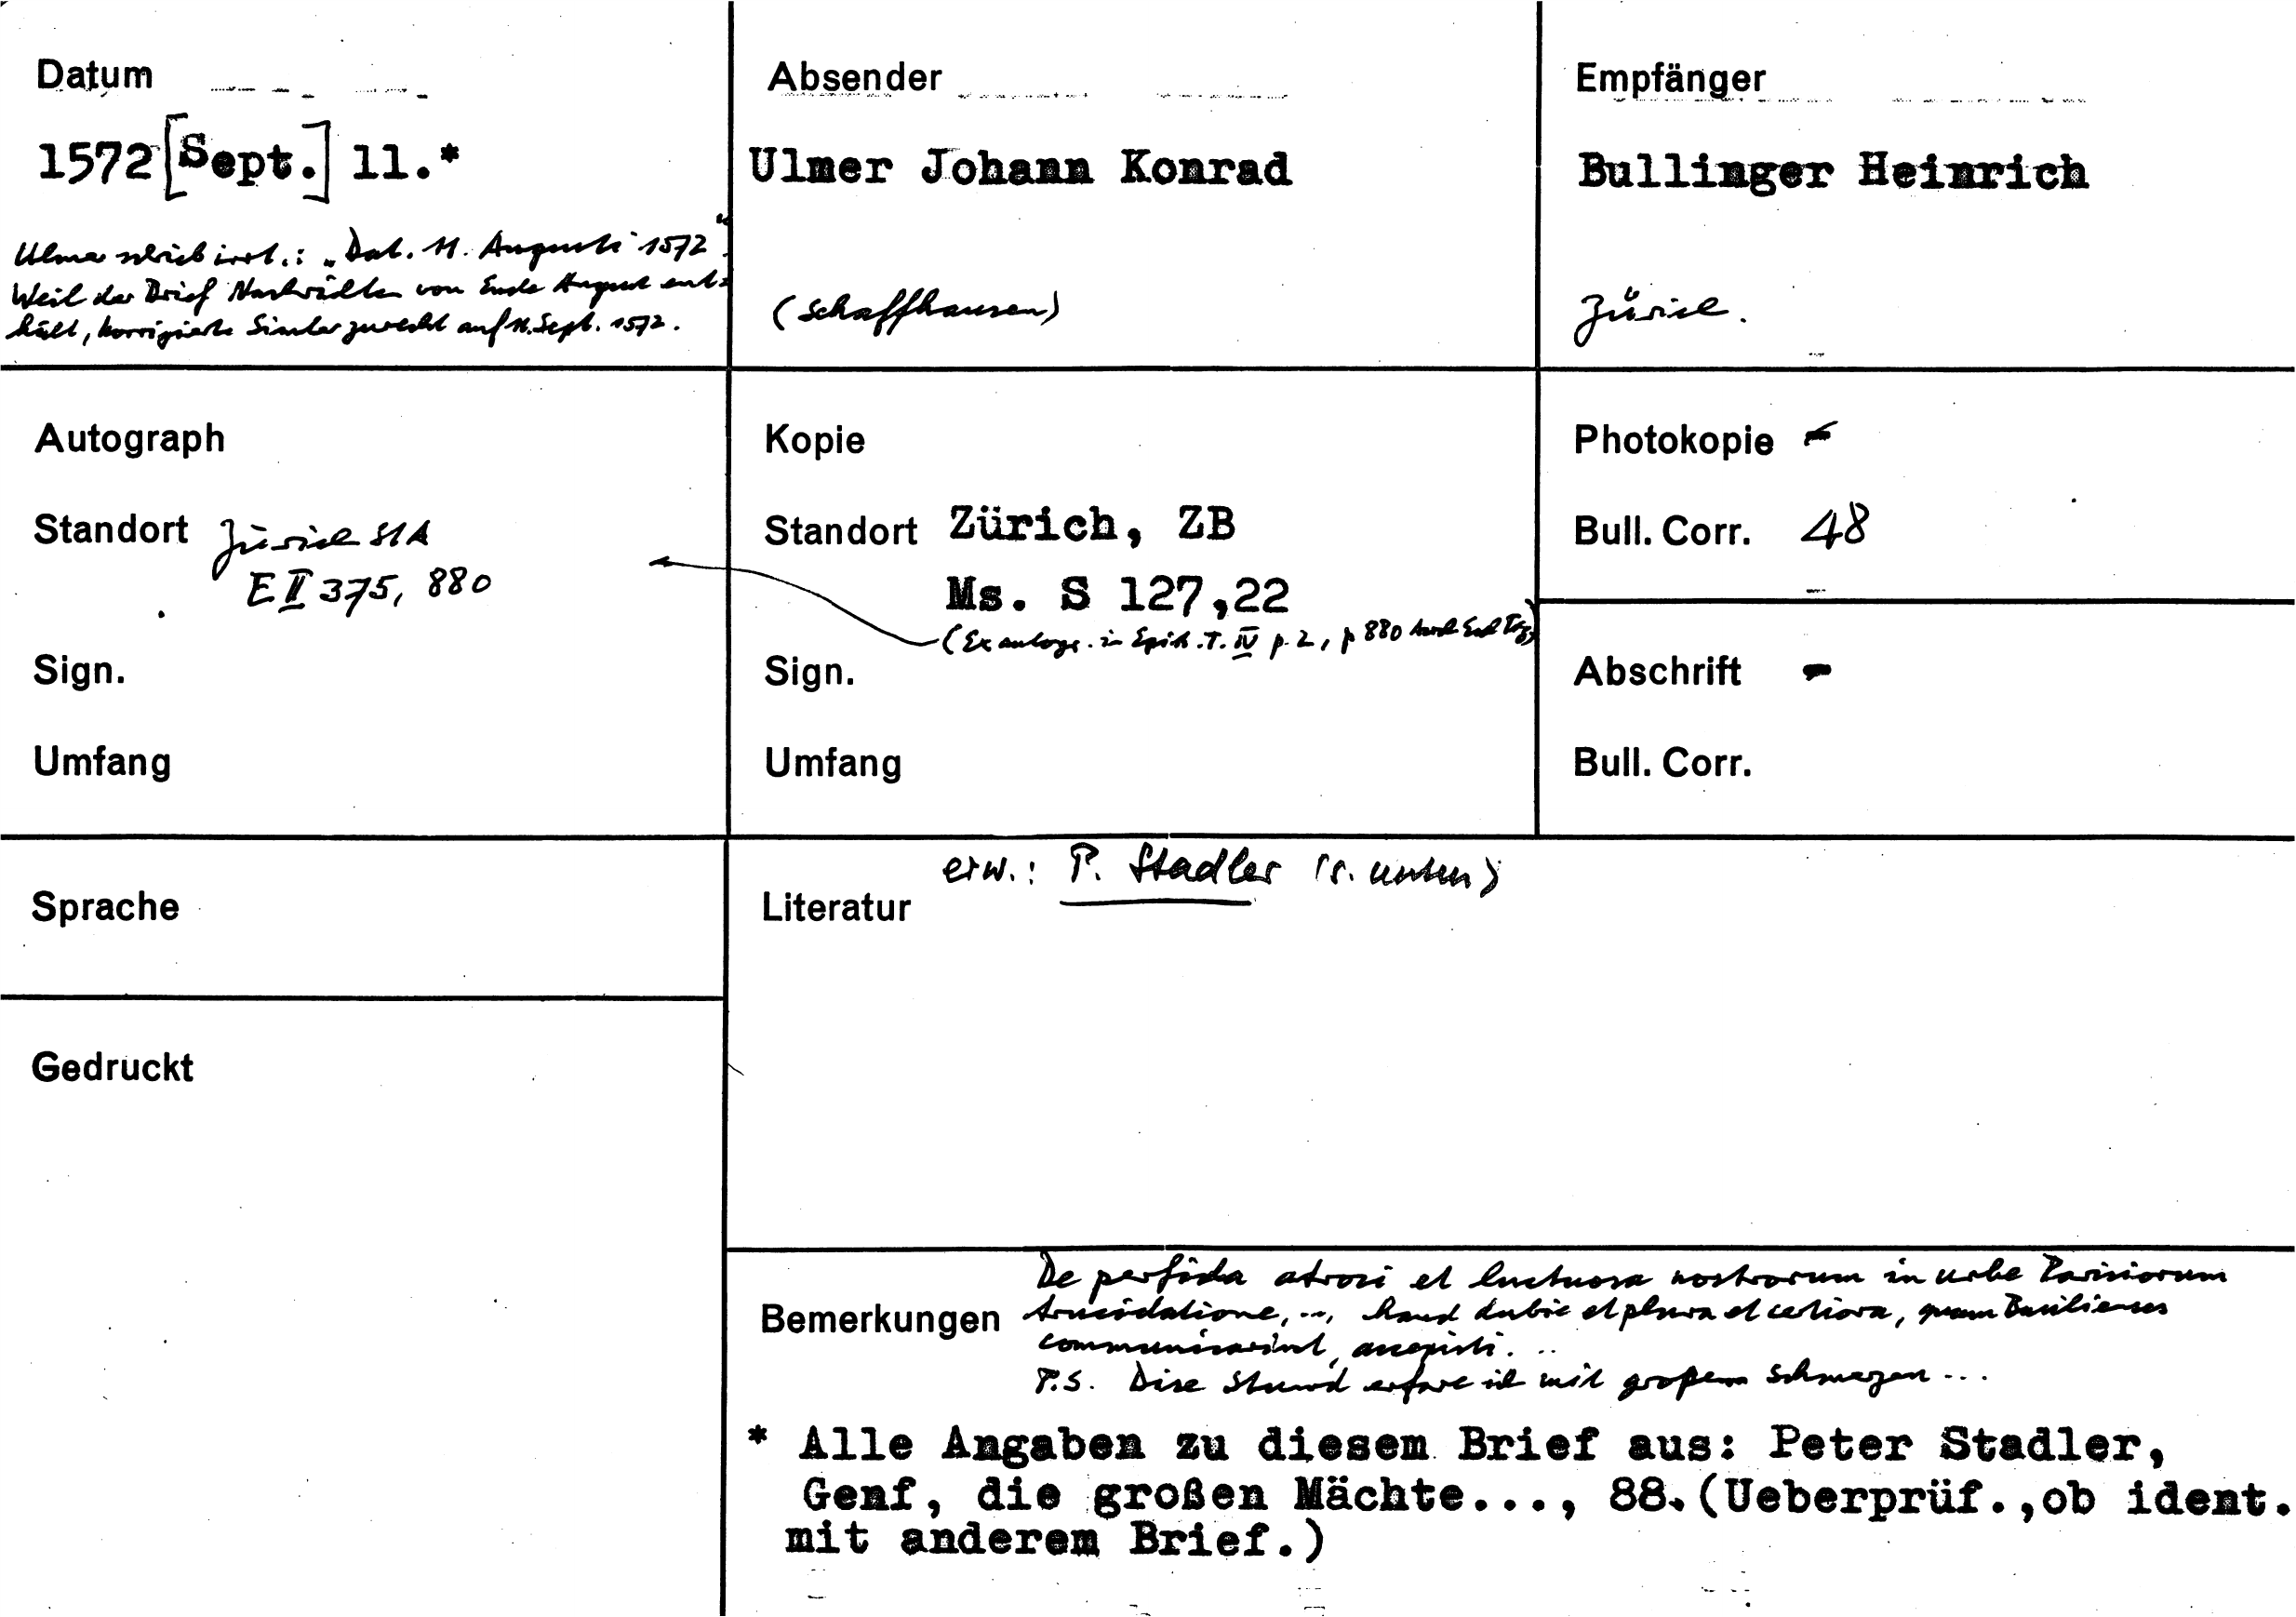 Datum
1572 [Sept.] 11.*
Ulmer schrieb irrt.: „Dat. 11. Augusti 1572“.
Weil der Brief Nachrichten von Ende August ent-
hält, korrigierte Simler zurecht auf 11. Sept. 1572.
Absender
Ulmer Johann Konrad
(Schaffhausen)
Empfänger
Bullinger Heinrich
Zürich.
Autograph
Standort Zürich StA
E II 375, 880
Sign.
Umfang
Kopie
Standort Zürich, ZB
Ms. S 127,22
(Ex autogr. in Epist. T. IV p. 2, p 880
Sign.
Umfang
Photokopie -
Bull. Corr. 48
Abschrift -
Bull. Corr.
Sprache
Gedruckt
erw.: P. Stadler (s. unten)
Literatur
De perfida atroci et luctuosa nostrorum in urbe Parisiorum
Bemerkungen trucidatione, ..., haud dubie et plura et certiora, quam Basilienses
communicarint, accepisti. ..
P.S. Dise Stund erfare ich mit großem schmerzen ...
* Alle Angaben zu diesem Brief aus: Peter Stadler,
Genf, die großen Mächte..., 88.(Ueberprüf.,ob ident.
mit anderem Brief.)